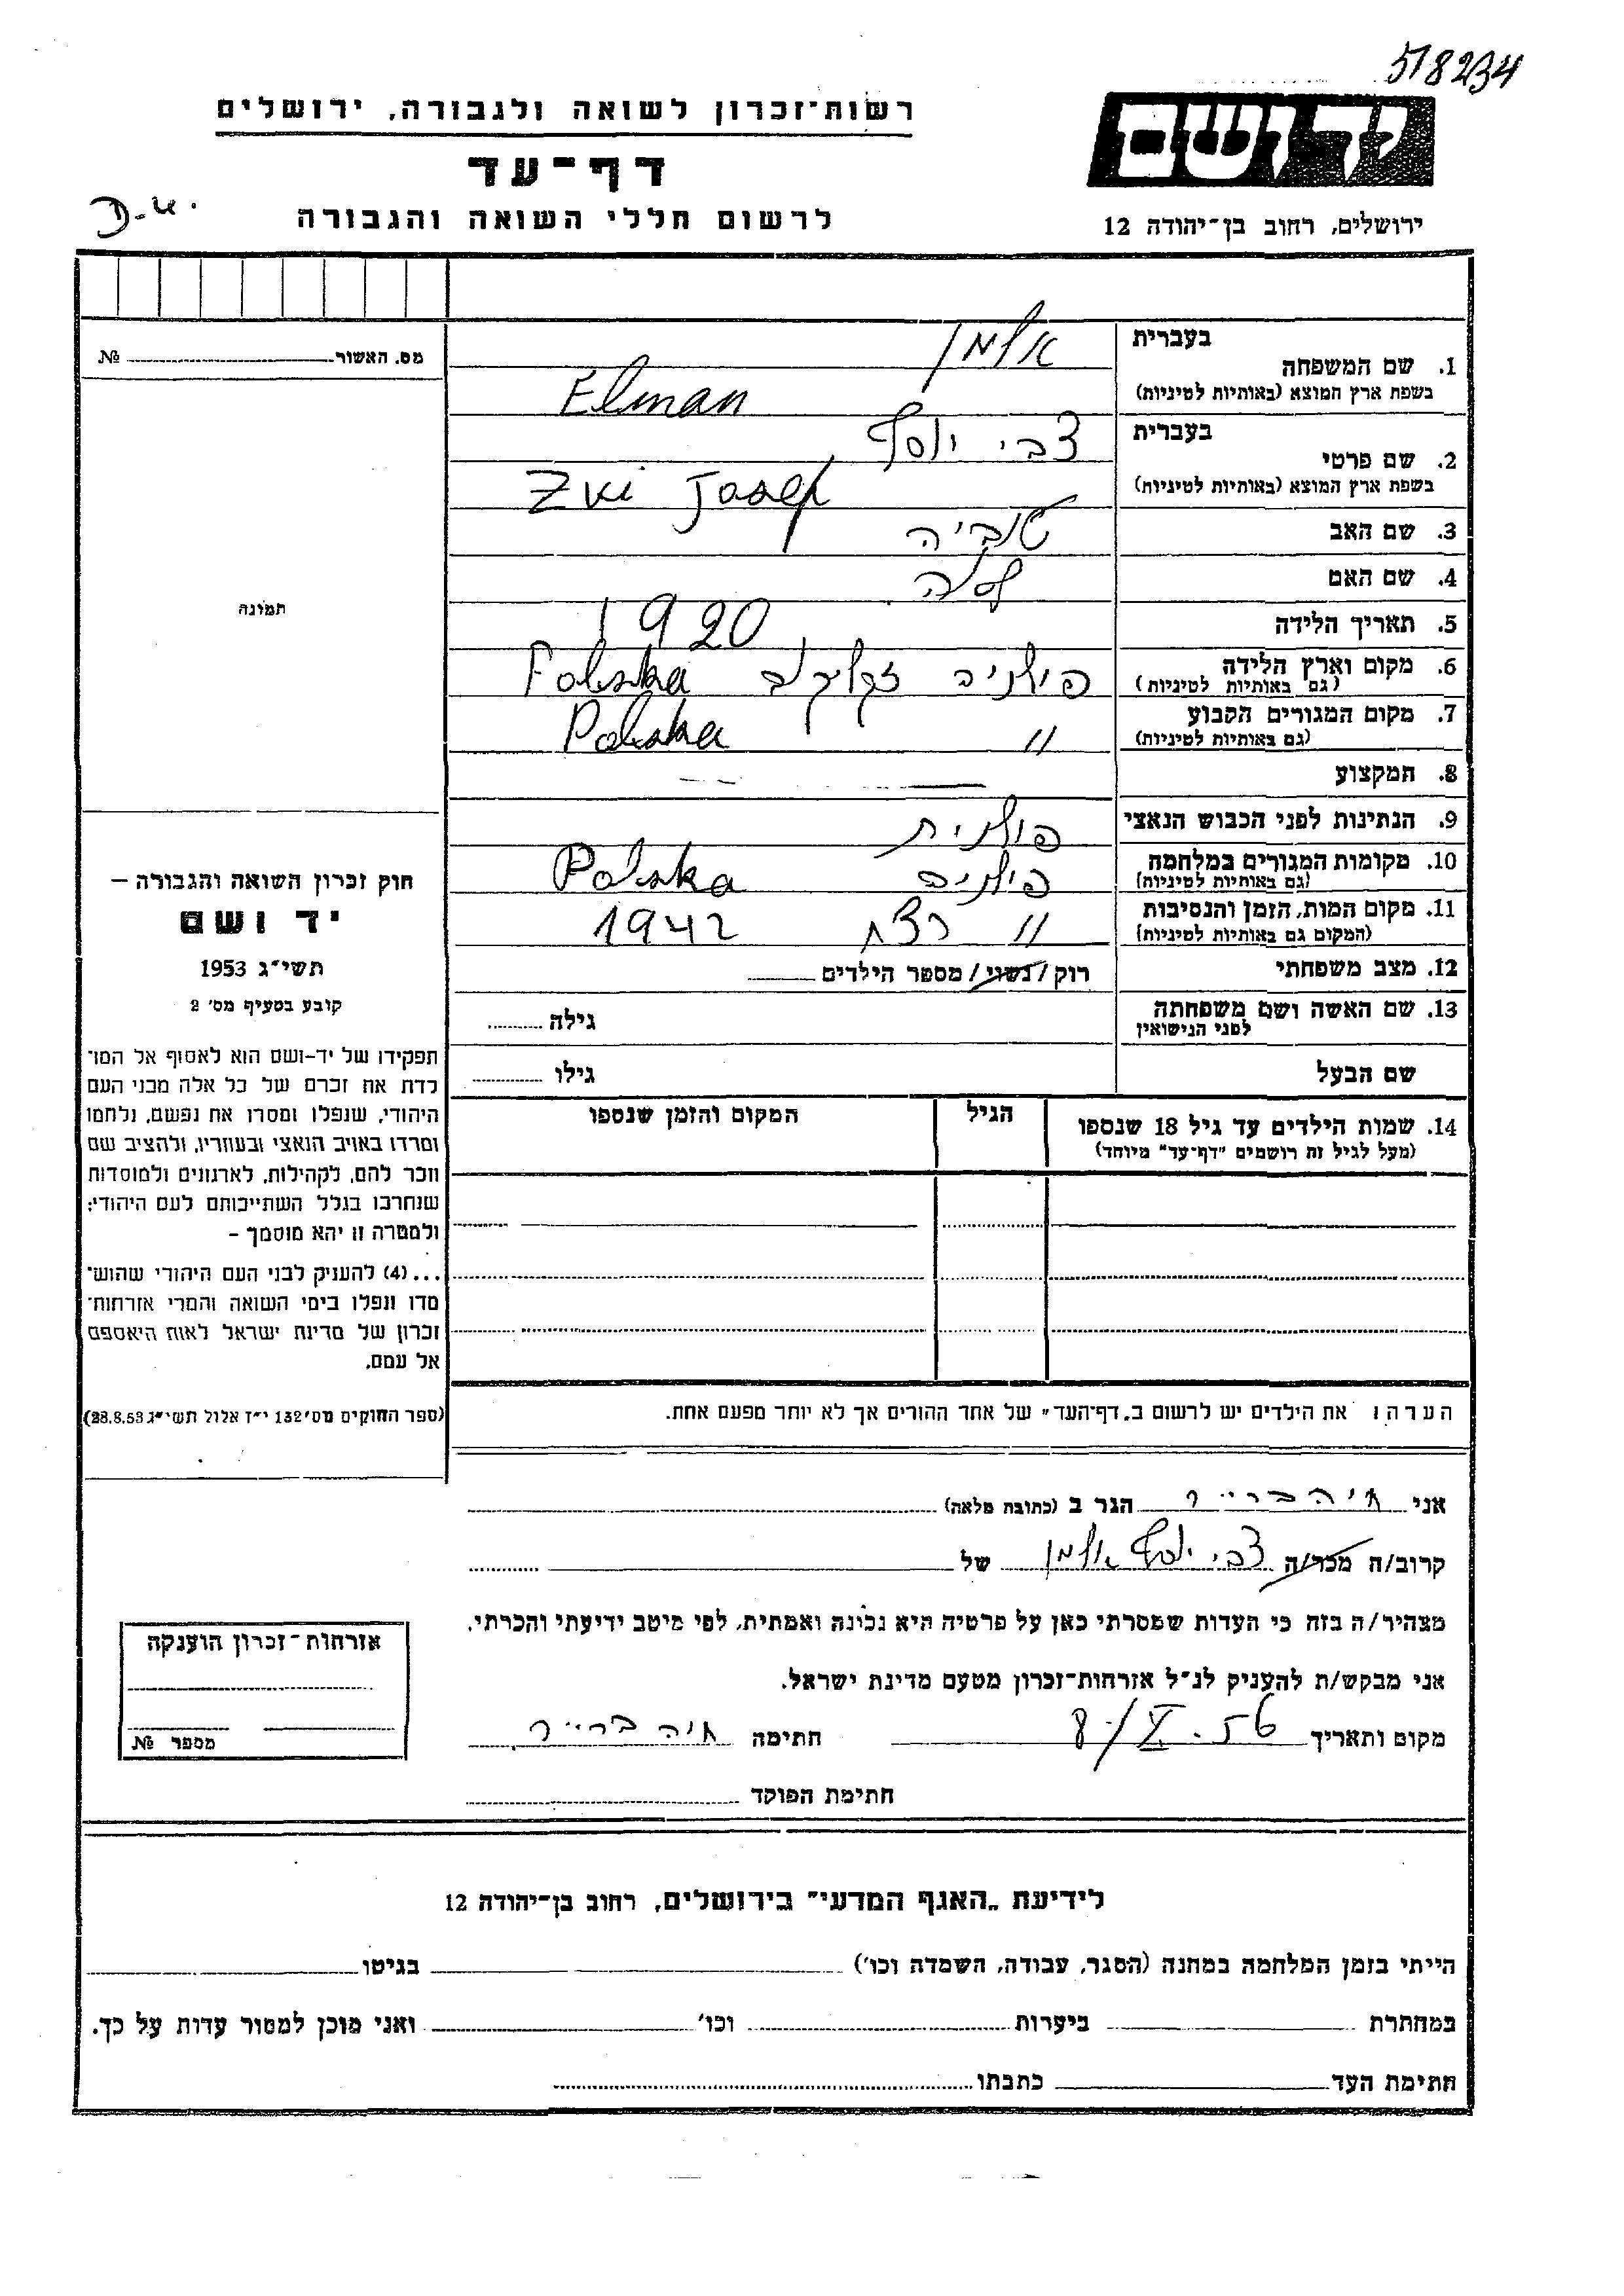 518234
רשות־זכרון לשואה ולגבורה, ירושלים
ידושם
דף־עד
לרשום חללי השואה והגבורה
ירושלים, רחוב בן־יהודה 12
מס. האשור № 
בעברית
אלמן
1. שם המשפחה
בשפת ארץ המוצא (באותיות לטיניות)
Elman
בעברית
צבי יוסף
2. שם פרטי
בשפת ארץ המוצא (באותיות לטיניות)
Zvi Josef
3. שם האב
טוביה
4. שם האם
תמונה
5. תאריך הלידה
1920
6. מקום וארץ הלידה
(גם באותיות לטיניות)
פולניה Polska
7. מקום המגורים הקבוע
(גם באותיות לטיניות)
" Polska
8. המקצוע
9. הנתינות לפני הכבוש הנאצי
פולנית
10. מקומות המגורים במלחמה
(גם באותיות לטיניות)
פולניה Polska
11. מקום המות, הזמן והנסיבות
(המקום גם באותיות לטיניות)
" נרצח 1942
12. מצב משפחתי
רוק / נשוי / מספר הילדים
13. שם האשה ושם משפחתה
לפני הנישואין
גילה
שם הבעל
גילו
חוק זכרון השואה והגבורה –
יד ושם
תשי״ג 1953
קובע בסעיף מס׳ 2
תפקידו של יד-ושם הוא לאסוף אל המו־
לדת את זכרם של כל אלה מבני העם
היהודי, שנפלו ומסרו את נפשם, נלחמו
ומרדו באויב הנאצי ובעוזריו, ולהציב שם
וזכר להם, לקהילות, לארגונים ולמוסדות
שנחרבו בגלל השתייכותם לעם היהודי;
ולמטרה זו יהא מוסמך –
...(4) להעניק לבני העם היהודי שהוש־
מדו ונפלו בימי השואה והמרי אזרחות־
זכרון של מדינת ישראל לאות היאספם
אל עמם.
(ספר החוקים מס׳ 132 י״ז אלול תשי״ג 28.8.53)
14. שמות הילדים עד גיל 18 שנספו
(מעל לגיל זה רושמים "דף־עד" מיוחד)
הגיל
המקום והזמן שנספו
הערה: את הילדים יש לרשום ב„דף־העד" של אחד ההורים אך לא יותר מפעם אחת.
אני חיה ברייר הגר ב (כתובת מלאה)
קרוב/ה מכר/ה צבי יוסף אלמן של
מצהיר/ה בזה כי העדות שמסרתי כאן על פרטיה היא נכונה ואמתית, לפי מיטב ידיעתי והכרתי.
אני מבקש/ת להעניק לנ״ל אזרחות־זכרון מטעם מדינת ישראל.
מקום ותאריך
חתימה חיה ברייר
חתימת הפוקד
אזרחות־זכרון הוענקה
מספר №
לידיעת „האגף המדעי" בירושלים, רחוב בן־יהודה 12
הייתי בזמן המלחמה במחנה (הסגר, עבודה, השמדה וכו׳) בגיטו
במחתרת ביערות וכו׳ ואני מוכן למסור עדות על כך.
חתימת העד כתבתו